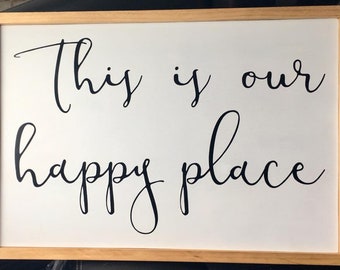 This is our
happy place